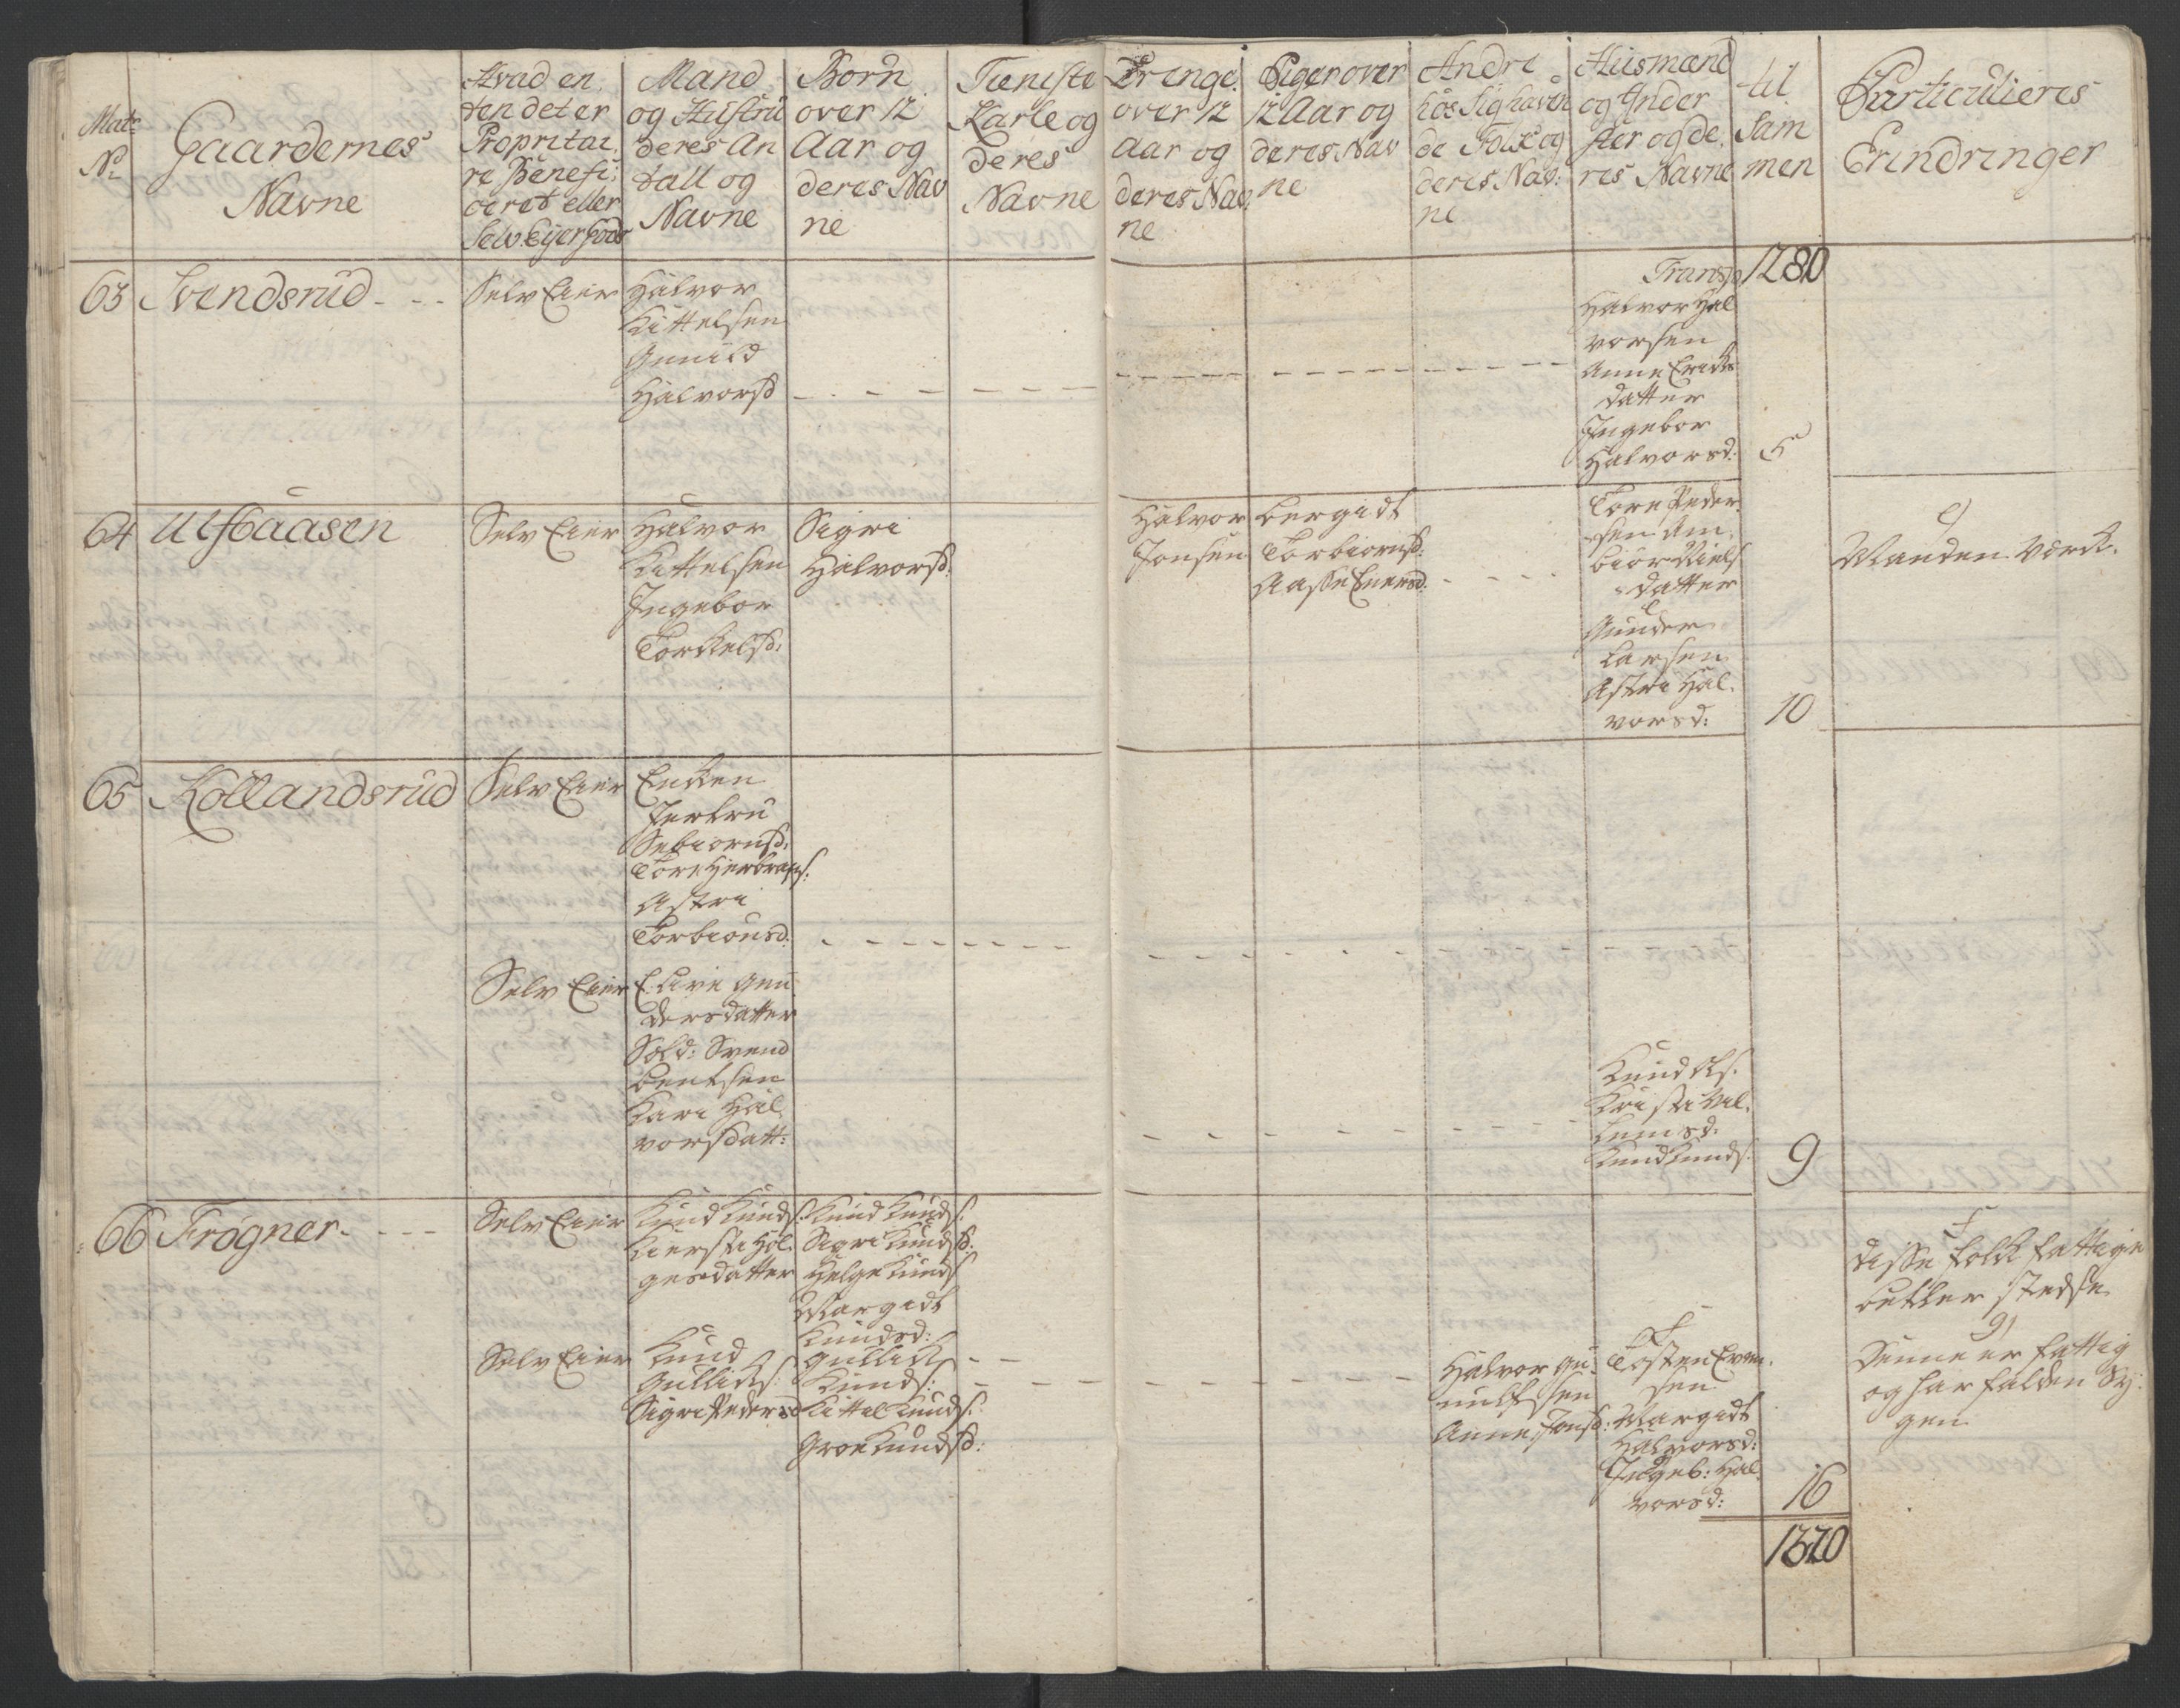 Mat:
No
Gaardernes
Navne
Hvad en
ten det er
Propritai
re Benefi:
ceret eller
Selv Eyer Gods
Mand
og Hustru
deres An
tall og
Navne
Børn
over 12
Aar og
deres Nav
ne
Tieniste
Karle og
deres
Navne
Drenge
over 12
Aar og
deres Nav
ne
Piger over
12 Aar og
deres Nav
ne
Andre
hos Sig haven
de Folk og
deres Nav:
ne
Husmænd
og Inder
ster og de
res Navne
til
Sam
men
Particulieres
Erindringer
Transp 1280
63 Svendsrud - - -
Selv Eier
Halvor
Kittelsen
Gunild
Halvorsd
Halvor Hal
vorsen
Anne Erichs
datter
Ingebor
Halvorsd:
5
64 Ulfbaasen
Selv Eier
Halvor
Kittelsen
Ingebor
Torkelsd:
Sigri
Halvorsd:
Halvor
Jonsen
Bergidt
Torbiornsd:
Aasse Enersd:
Tore Peder
sen Am
biør Niels
datter
e
Gunder
Larsen
Astri Hal
vorsd:
10
e)
Manden Vørk.
65 Kollandsrud
Selv Eier
Enken
Jertru
Sebiornsd:
Tore Herbrans:
Astri
Torbionsd:
Selv Eier
E: Live Gun
dersdatter
Sold: Svend
Bentsen
Kari Hal
vorsdatt:
Knud Ols:
Kristi Vil
lumsd:
Knud Knuds:
9
66 Frogner - - - -
Selv Eier
Knud Knuds:
Kiersti Hol
gesdatter
Knud Knuds:
Sigri Knudsd:
Helge Knuds
Margidt
Knudsd:
f
disse folk fattige
betler stedse
Selv Eier
Knud
Gullichs:
Sigri Pedersd
Gullich
Knuds:
Kittel Knuds:
Groe Knudsd:
Halvor Gu
nulfsen
Anne Jonsd:
f
Tosten Even
sen
Margidt
Halvorsd:
g
Ingeb: Hal
vorsd:
16
g)
Denne er fattig
og har falden Sy
gen
1320